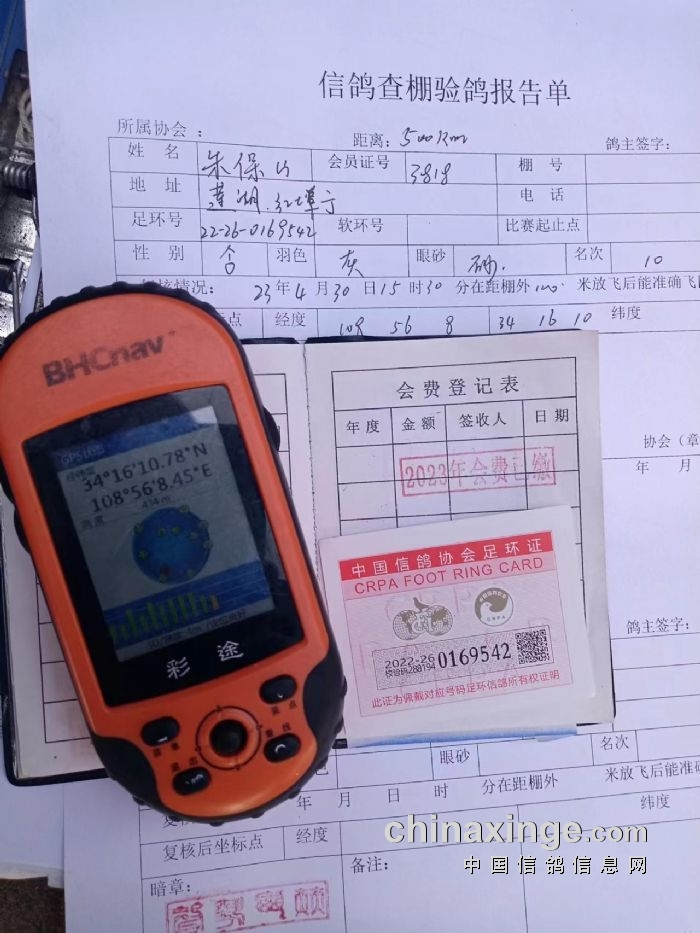 信鸽查棚验鸽报告单
所属协会： 距离：500Km 鸽主签字：
姓名 朱保 会员证号 3818 棚号
地址 莲湖 电话
足环号 22-26-0169542 软环号 比赛起止点
性别 羽色 灰 眼砂 砂. 名次 10
核情况： 23年4月30日15时30分在距棚外 米放飞后能准确飞
点 经度 108 56 8 34 16 10 纬度
BHCnav
GPS状态
经纬度
34°16'10.78"N
108°56'8.45"E
高度 434m
彩途
菜单 退出 查找
会费登记表
年度 金额 签收人 日期
2023年会费已缴
协会（章
年 月
中国信鸽协会足环证
CRPA FOOT RING CARD
2022-26 0169542
此证为佩戴对应号码足环信鸽所有权证明
鸽主签字：
眼砂 名次
年 月 日 时 分在距棚外 米放飞后能准确
复核后坐标点 经度 纬度
chinaxinge.com
中国信鸽信息网
暗章： 备注：